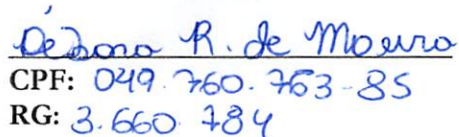 Débora R. de Moura
CPF: 049.760.763-85
RG: 3.660.784